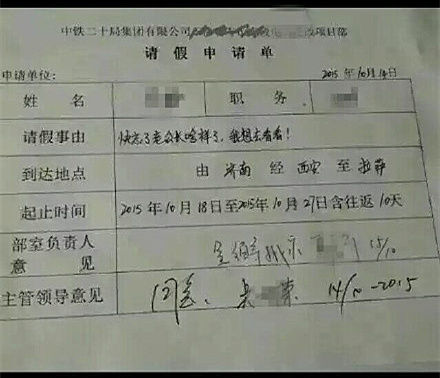 中铁二十局集团有限公司 项目部
请假申请单
申请单位: 2015年10月14日
姓名 职务
请假事由 快忘了老公长啥样了,我想去看看!
到达地点 由 济南 经 西安 至
起止时间 2015年10月18日至2015年10月27日含往返10天
部室负责人
意见 15/10
主管领导意见 同意. 14/10-2015